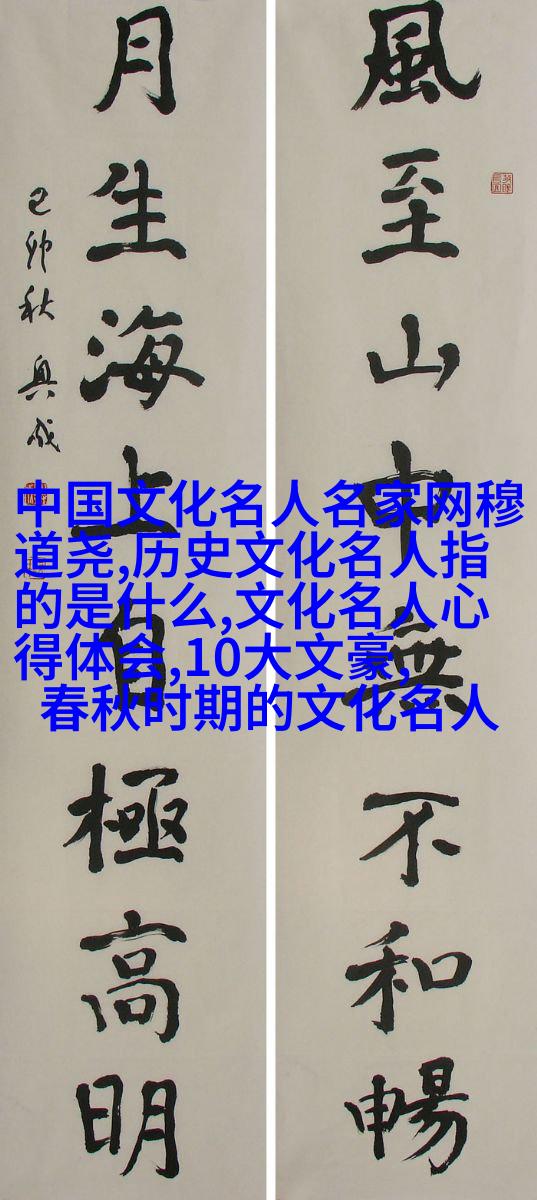 風至山中無不和暢
月生海上自極高明
己卯秋
中国文化名人名家网穆
道尧,历史文化名人指
的是什么,文化名人心
得体会,10大文豪,
春秋时期的文化名人